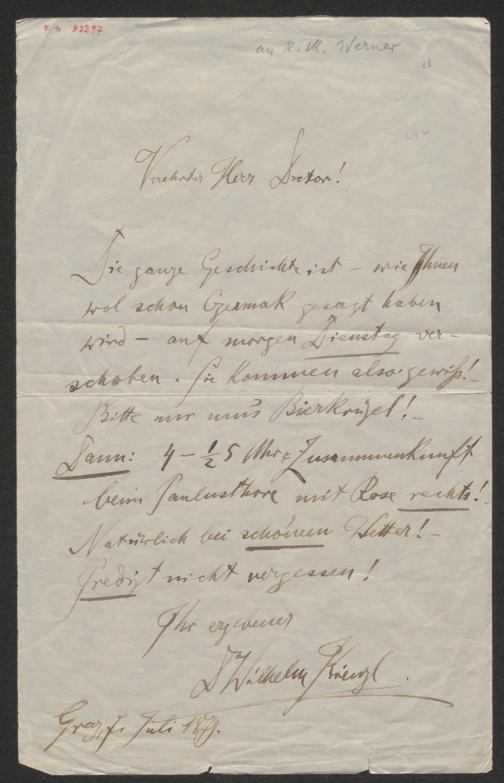 an R. M. Werner
Verehrter Herr Doctor!
Die ganze Geschichte ist – wie Ihnen
wol schon Czermak gesagt haben
wird – auf morgen Dienstag ver-
schoben. Sie kommen also gewiß! –
Bitte nur um's Bierkrügel! –
Dann: 4 – ½5 Uhr: Zusammenkunft
beim Paulusthore mit Rose rechts! –
Natürlich bei schönem Wetter! –
Predigt nicht vergessen!
Ihr ergebener
Dr Wilhelm Kienzl.
Graz, 7. Juli 1879.